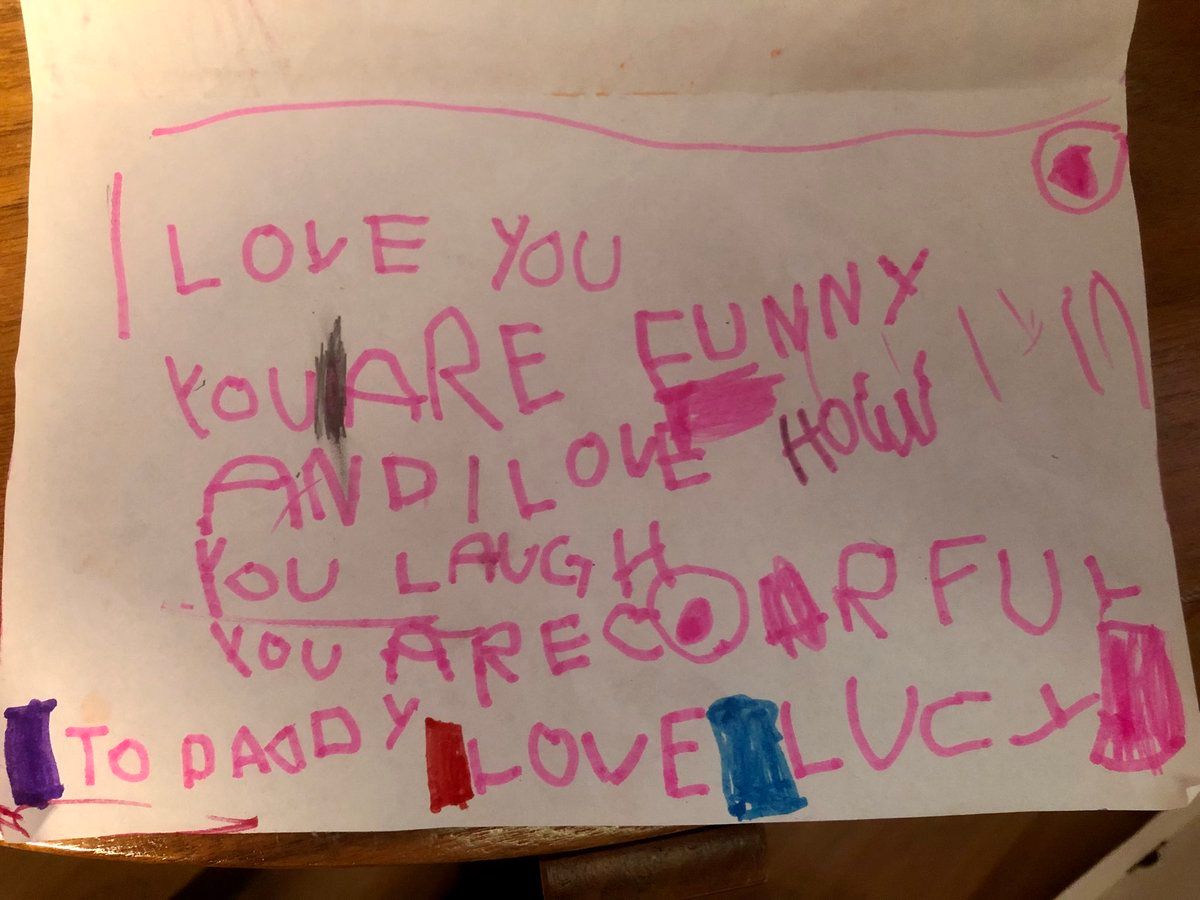 I LOVE YOU
YOU ARE FUNNY
AND I LOVE HOW
YOU LAUGH
YOU ARE COARFUL
TO DADDY LOVE LUCY